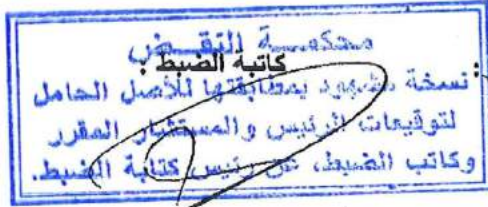 محكمة النقض
كاتبة الضبط :
نسخة مشهود بمطابقتها للأصل الحامل
لتوقيعات الرئيس والمستشار المقرر
وكاتب الضبط، عن رئيس كتابة الضبط.